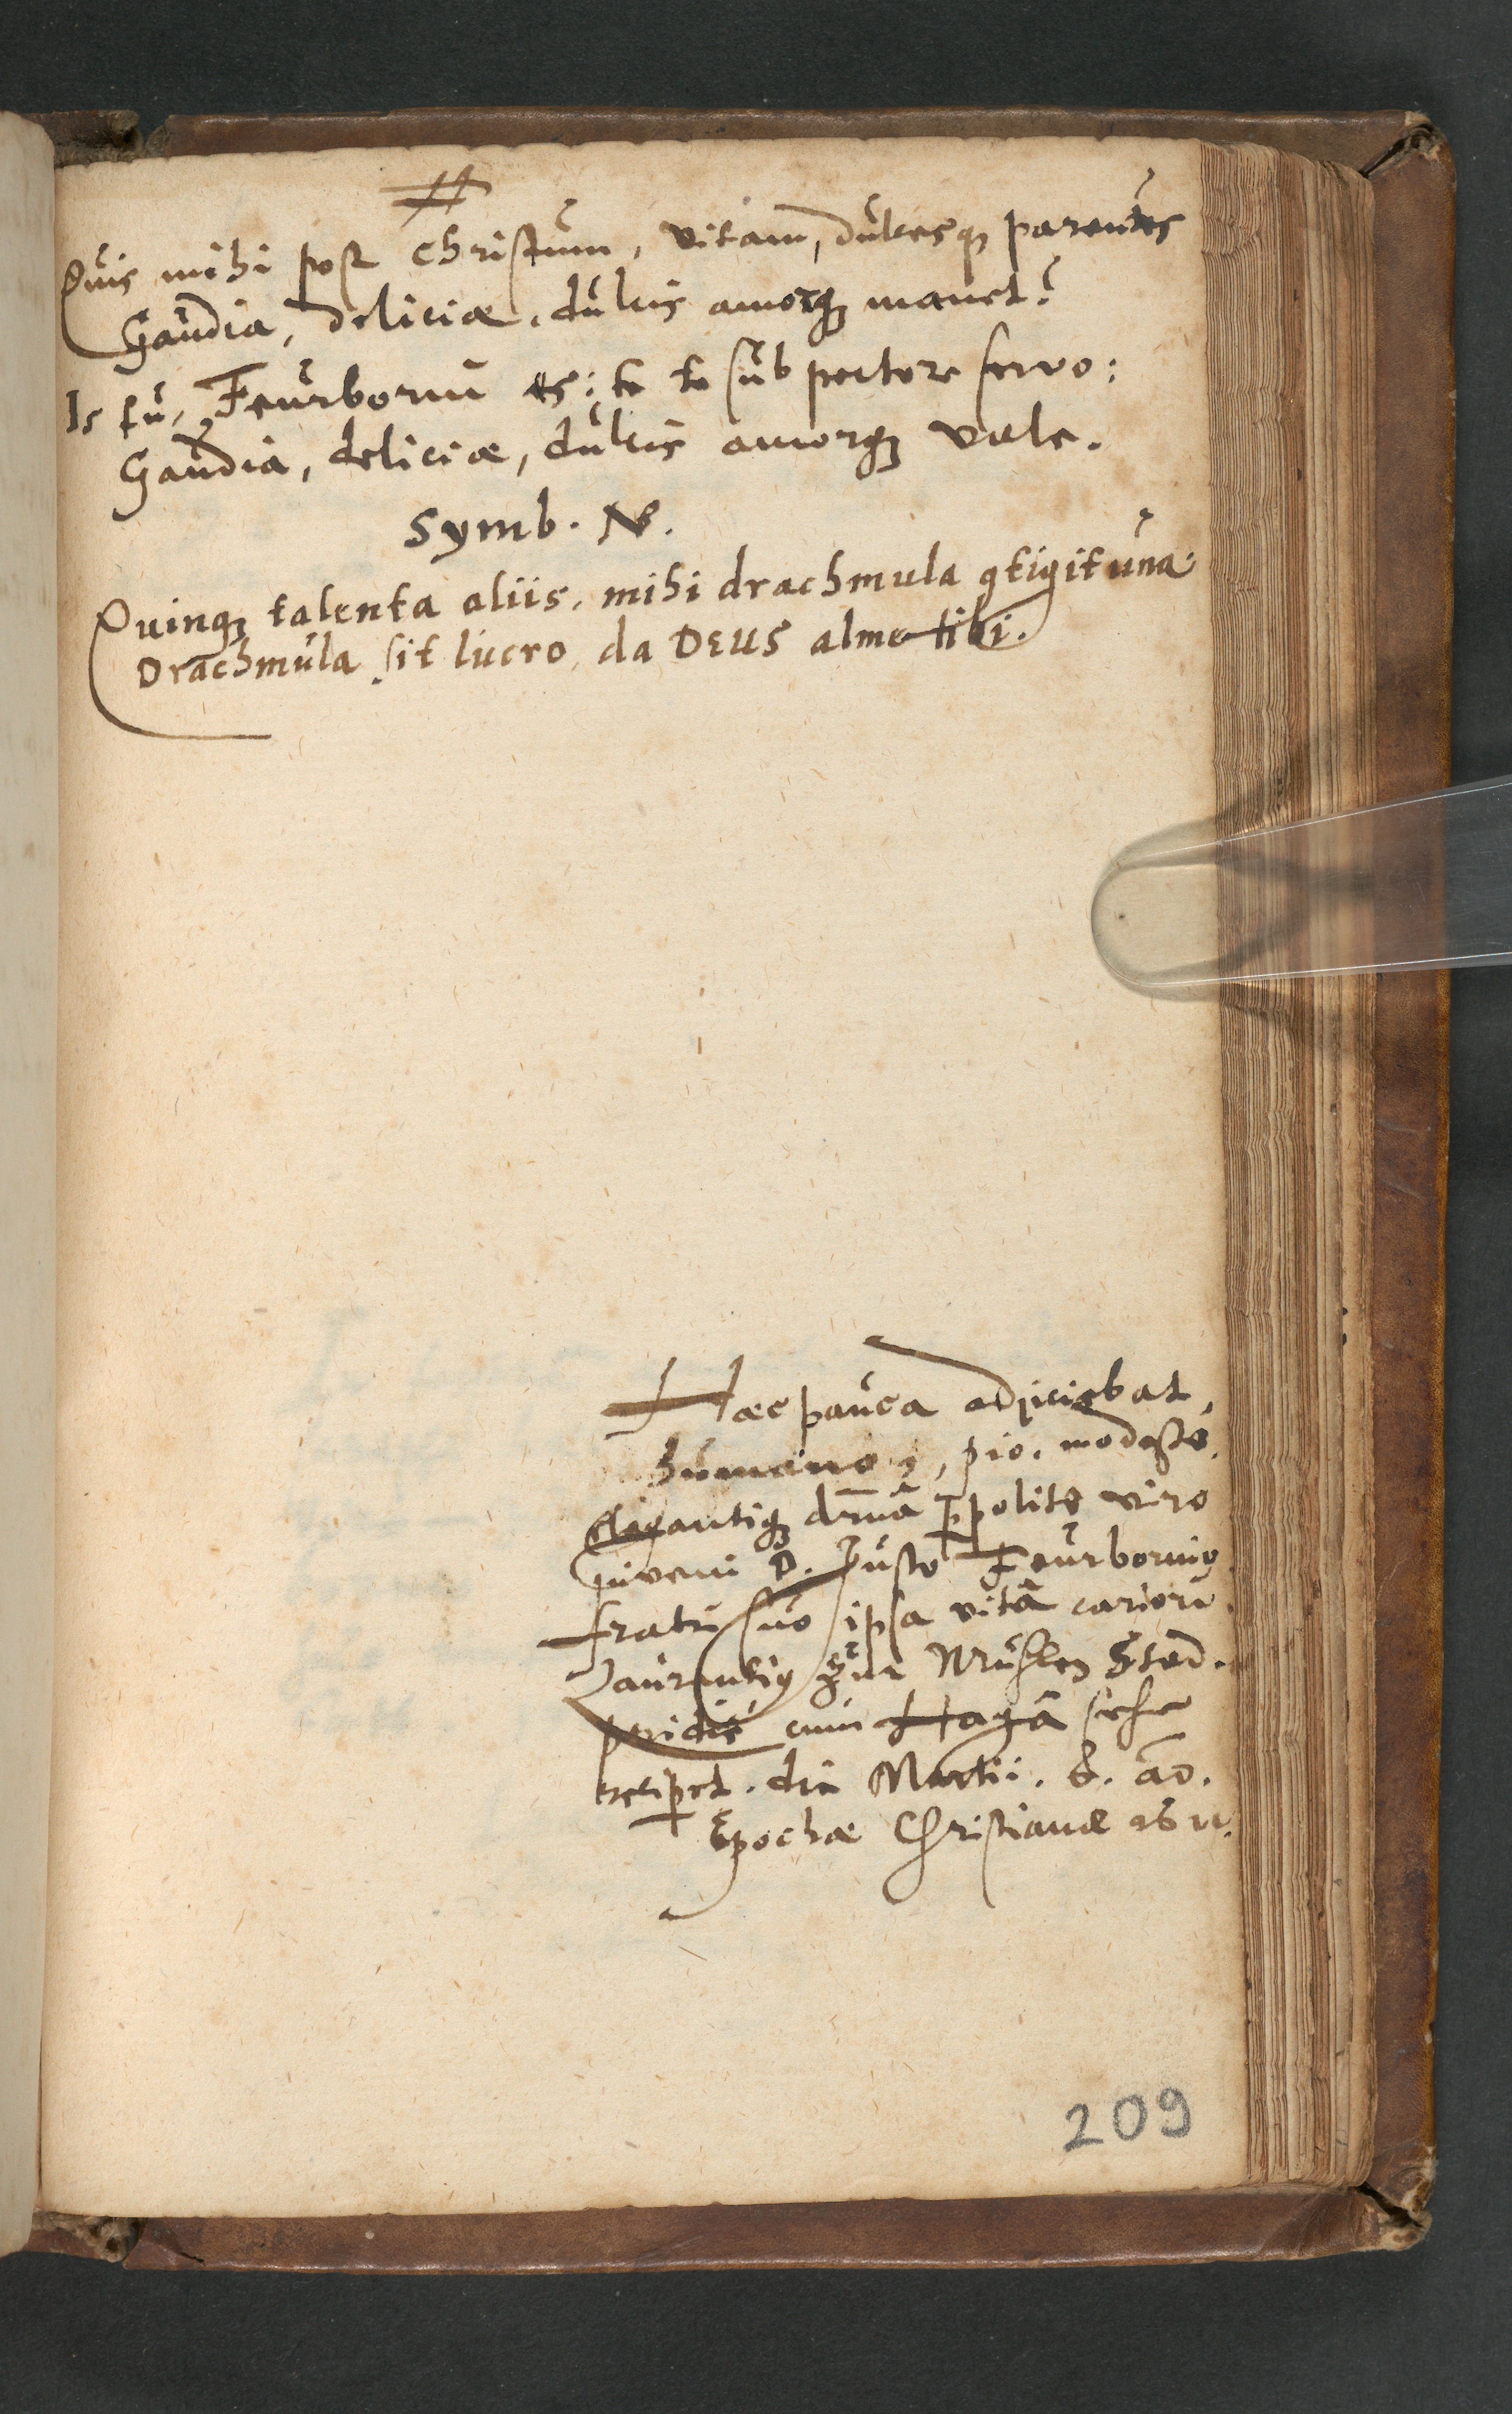 Quis mihi post Christum, vitam, dulcesq; parentes
Gaudia, deliciæ, dulcis amorq; manet?
Is tu, Feurborni es: te te sub pectore servo:
Gaudia, deliciæ, dulcis amorq; vale.
Symb. N.
Quinq; talenta aliis, mihi drachmula ꝯtigit una:
Drachmula sit lucro, da DEUS alme tibi.
Hæc pauca adjiciebat,
humano, pio, modesto,
elegantiq; drinâ ꝑpolito viro
juveni D. Justo Feurbornio
fratri suo ipsa vitâ cariori
Laurentiꝰ Zur Mühlen
cum Hagâ sese
recipet. die Martii. 8. aõ.
Epochæ Christianæ 1611.
209